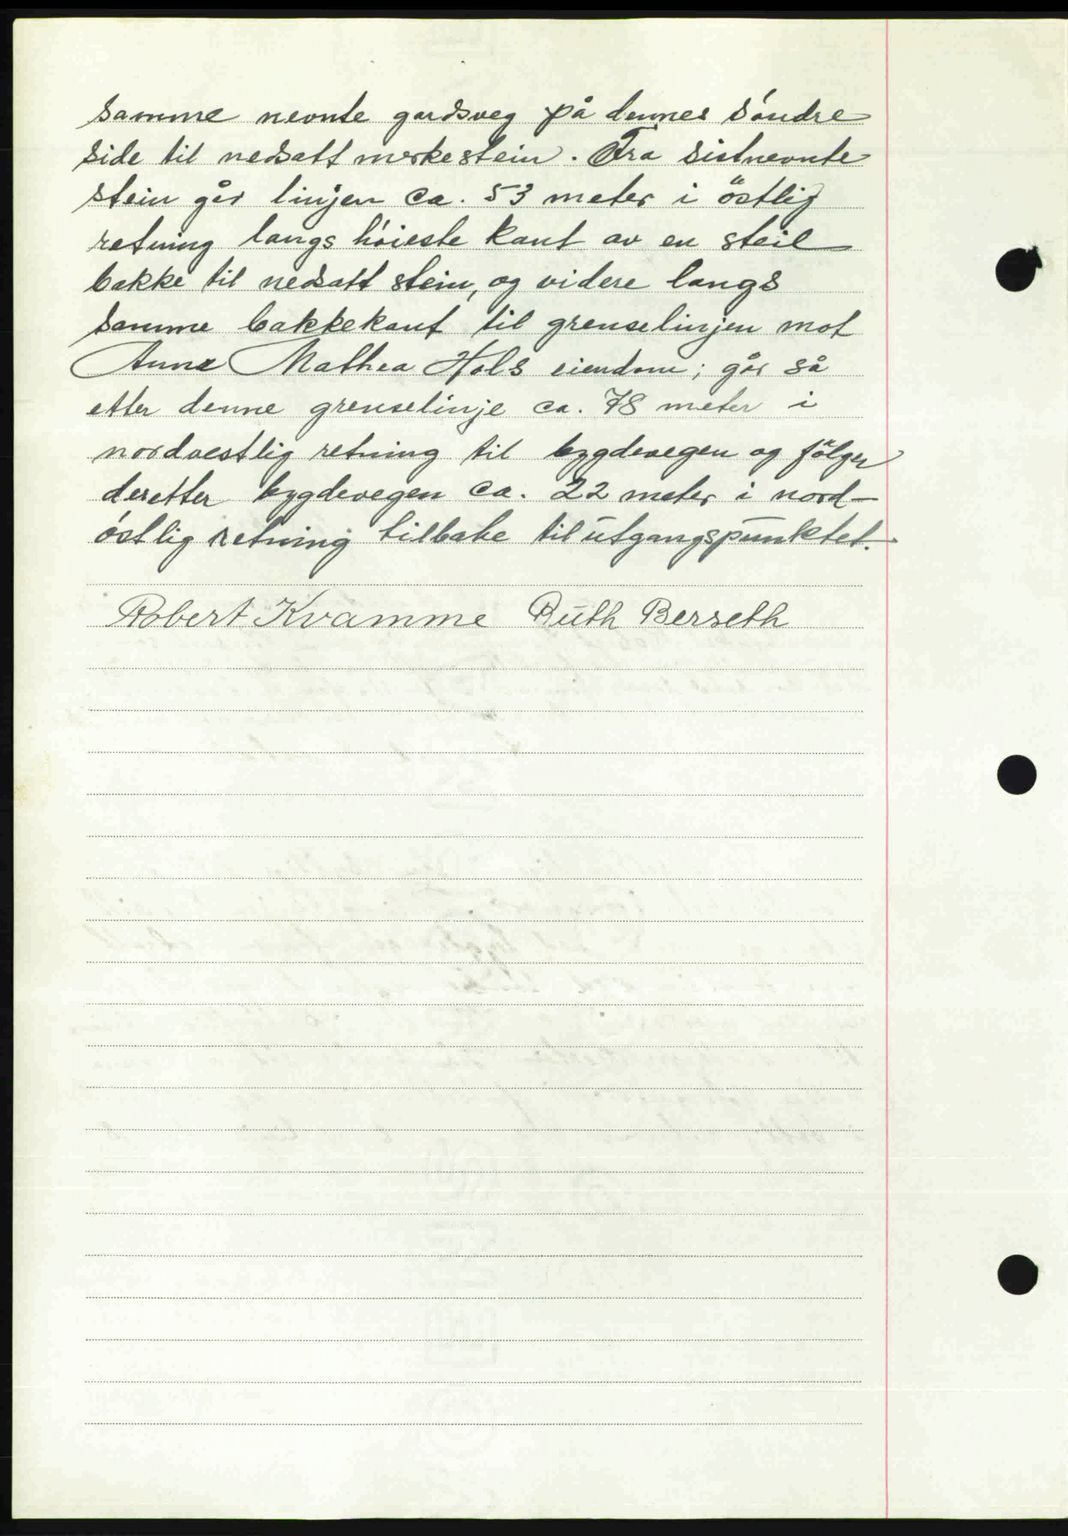 samme nevnte gardsveg på dennes söndre
side til nedsatt merkestein. Fra sistnevnte
stein går linjen ca. 53 meter i östlig
retning langs höieste kant av en steil
bakke til nedsatt stein, og videre langs
samme bakkekant til grenselinjen mot
Anna Mathea Hols eiendom; går så
etter denne grenselinje ca. 78 meter i
nordvestlig retning til bygdevegen og fölger
deretter bygdevegen ca. 22 meter i nord-
östlig retning tilbake til utgangspunktet.
Robert Kvamme Ruth Berseth